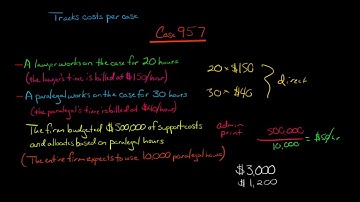 Tracks costs per case
Case 957
- A lawyer works on the case for 20 hours
(the lawyer's time is billed at $150/hour)
20 × $150
direct
- A paralegal works on the case for 30 hours
(the paralegal's time is billed at $40/hour)
30 × $40
The firm budgeted $500,000 of support costs
and allocates based on paralegal hours
(The entire firm expects to use 10,000 paralegal hours)
admin
print
500,000
10,000
= $50/hr
$3,000
$1,200